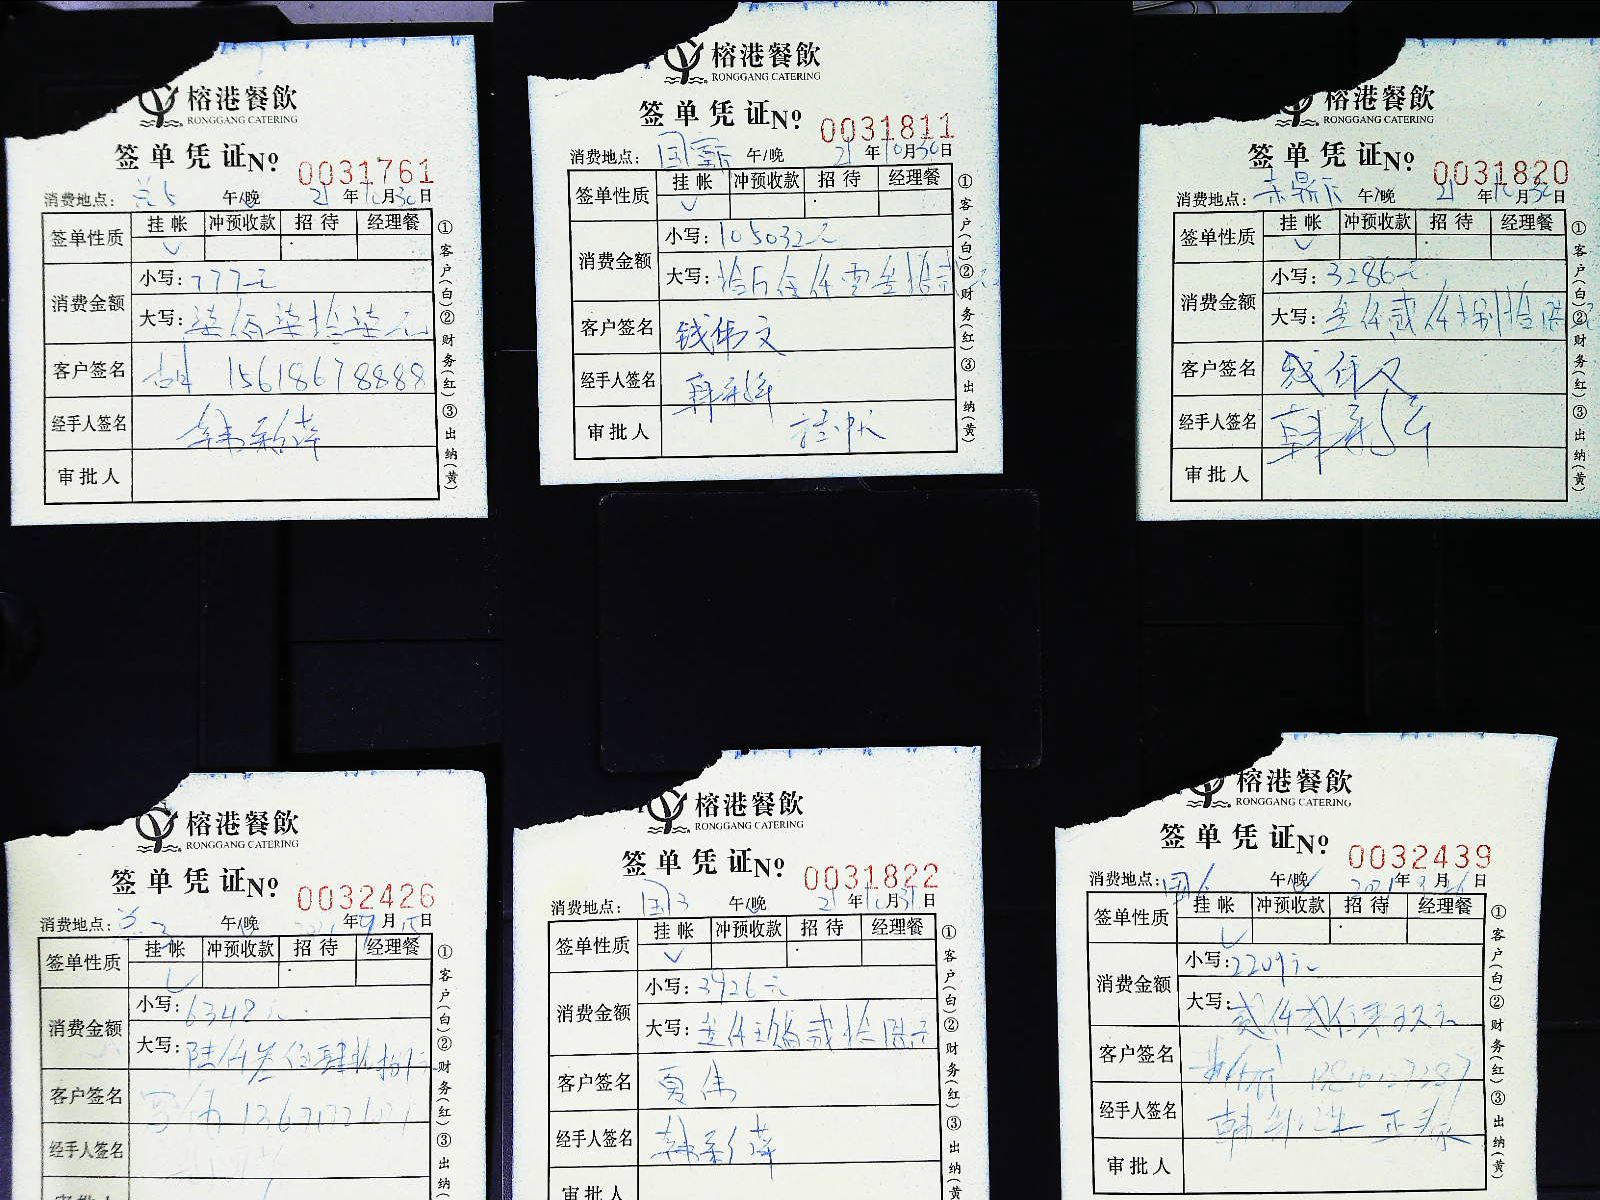 榕港餐飲
RONGGANG CATERING
签单凭证 No 0031761
消费地点: 午/晚 21年10月30日
签单性质 挂帐 冲预收款 招待 经理餐
消费金额 小写: 777元
大写: 柒佰柒拾柒元
客户签名 15618678888
经手人签名
审批人
①客户(白)②财务(红)③出纳(黄)
榕港餐飲
RONGGANG CATERING
签单凭证 No 0031811
消费地点: 午/晚 21年10月30日
签单性质 挂帐 冲预收款 招待 经理餐
消费金额 小写: 105032元
大写: 拾万伍仟零叁拾贰元
客户签名 钱伟文
经手人签名
审批人
①客户(白)②财务(红)③出纳(黄)
榕港餐飲
RONGGANG CATERING
签单凭证 No 0031820
消费地点: 午/晚 21年10月30日
签单性质 挂帐 冲预收款 招待 经理餐
消费金额 小写: 3286元
大写: 叁仟贰佰捌拾陆元
客户签名
经手人签名
审批人
①客户(白)②财务(红)③出纳(黄)
榕港餐飲
RONGGANG CATERING
签单凭证 No 0032426
消费地点: 午/晚 年9月15日
签单性质 挂帐 冲预收款 招待 经理餐
消费金额 小写: 6348元
大写: 陆仟叁佰肆拾捌元
客户签名
经手人签名
审批人
①客户(白)②财务(红)③出纳
榕港餐飲
RONGGANG CATERING
签单凭证 No 0031822
消费地点: 午/晚 21年10月31日
签单性质 挂帐 冲预收款 招待 经理餐
消费金额 小写: 3926元
大写: 叁仟玖佰贰拾陆元
客户签名 夏伟
经手人签名
审批人
①客户(白)②财务(红)③出纳(黄
榕港餐飲
RONGGANG CATERING
签单凭证 No 0032439
消费地点: 午/晚 2021年 月 日
签单性质 挂帐 冲预收款 招待 经理餐
消费金额 小写: 2209元
大写: 贰仟贰佰零玖元
客户签名
经手人签名
审批人
①客户(白)②财务(红)③出纳(黄)